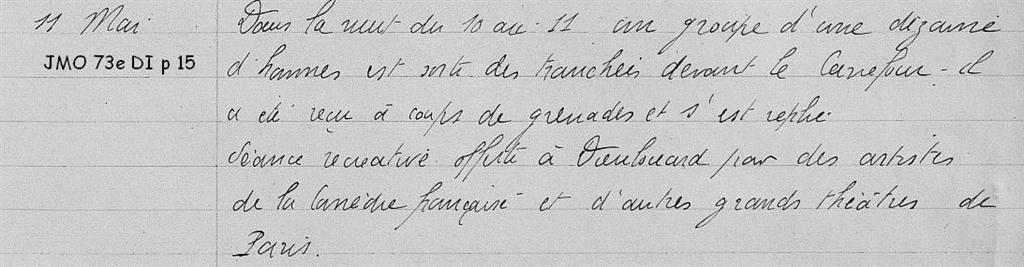 11 Mai
JMO 73e DI p 15
Dans la nuit du 10 au 11 un groupe d'une dizaine
d'hommes est sorti des tranchées devant le Carrefour - il
a été reçu à coups de grenades et s'est replié.
Séance récréative offerte à Dieulouard par des artistes
de la Comédie française et d'autres grands théâtres de
Paris.